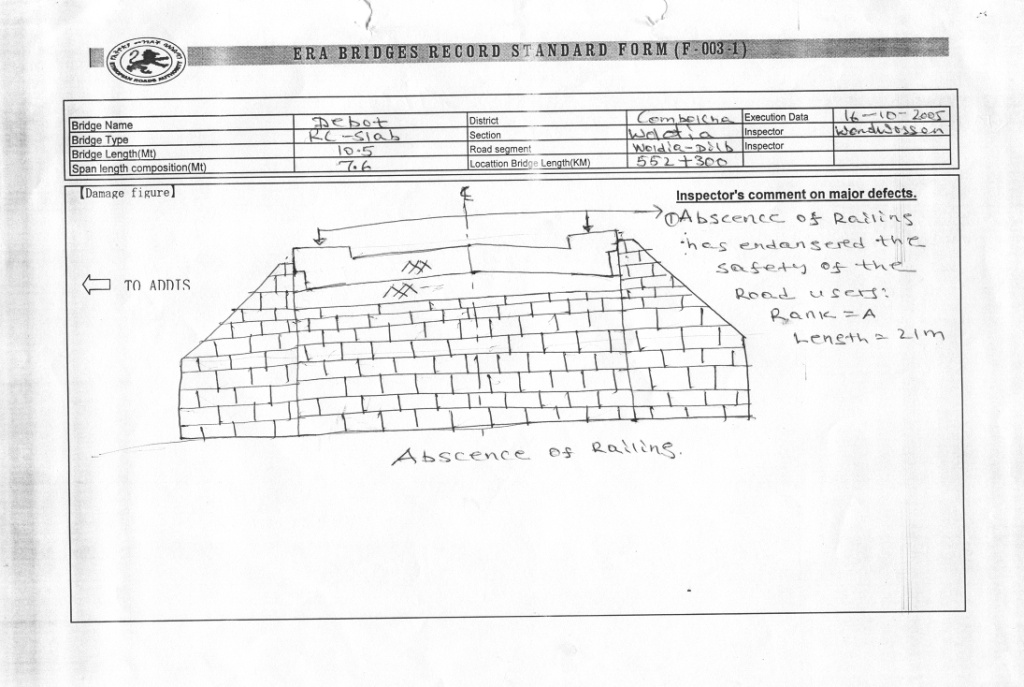 ERA BRIDGES RECORD STANDARD FORM (F-003-1)
Bridge Name Debot District Combolcha Execution Data 16-10-2005
Bridge Type RC-Slab Section Woldia Inspector Wondwossen
Bridge Length(Mt) 10.5 Road segment Woldia-Dilb Inspector
Span length composition(Mt) 7.6 Locattion Bridge Length(KM) 552+300
【Damage figure】
Inspector's comment on major defects.
① Abscence of Railing
has endangered the
safety of the
Road users:
Rank = A
Length = 21m
TO ADDIS
Abscence of Railing.